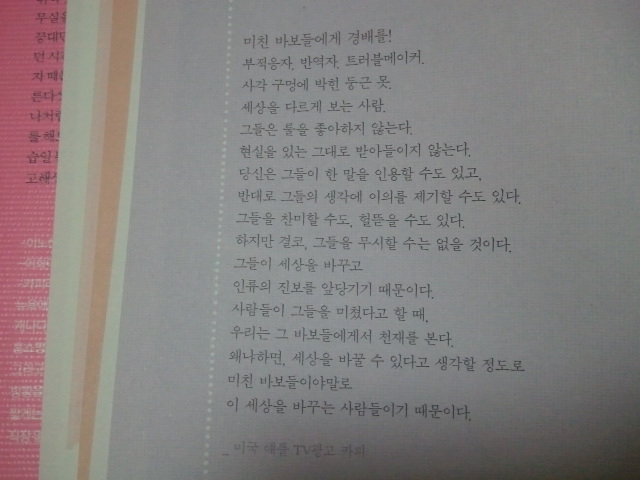 미친 바보들에게 경배를!
부적응자, 반역자, 트러블메이커.
사각 구멍에 박힌 둥근 못.
세상을 다르게 보는 사람.
그들은 룰을 좋아하지 않는다.
현실을 있는 그대로 받아들이지 않는다.
당신은 그들이 한 말을 인용할 수도 있고,
반대로 그들의 생각에 이의를 제기할 수도 있다.
그들을 찬미할 수도, 헐뜯을 수도 있다.
하지만 결코, 그들을 무시할 수는 없을 것이다.
그들이 세상을 바꾸고
인류의 진보를 앞당기기 때문이다.
사람들이 그들을 미쳤다고 할 때,
우리는 그 바보들에게서 천재를 본다.
왜냐하면, 세상을 바꿀 수 있다고 생각할 정도로
미친 바보들이야말로
이 세상을 바꾸는 사람들이기 때문이다.
_ 미국 애플 TV광고 카피